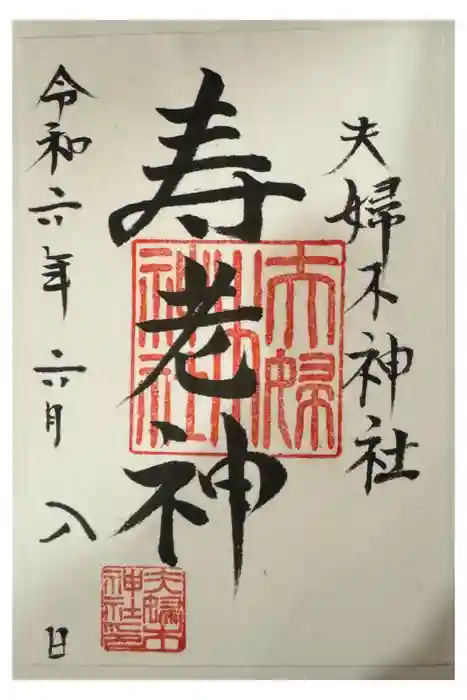 夫婦木神社
寿老神
令和六年六月八日
夫婦
木
神社
夫婦木
神社印